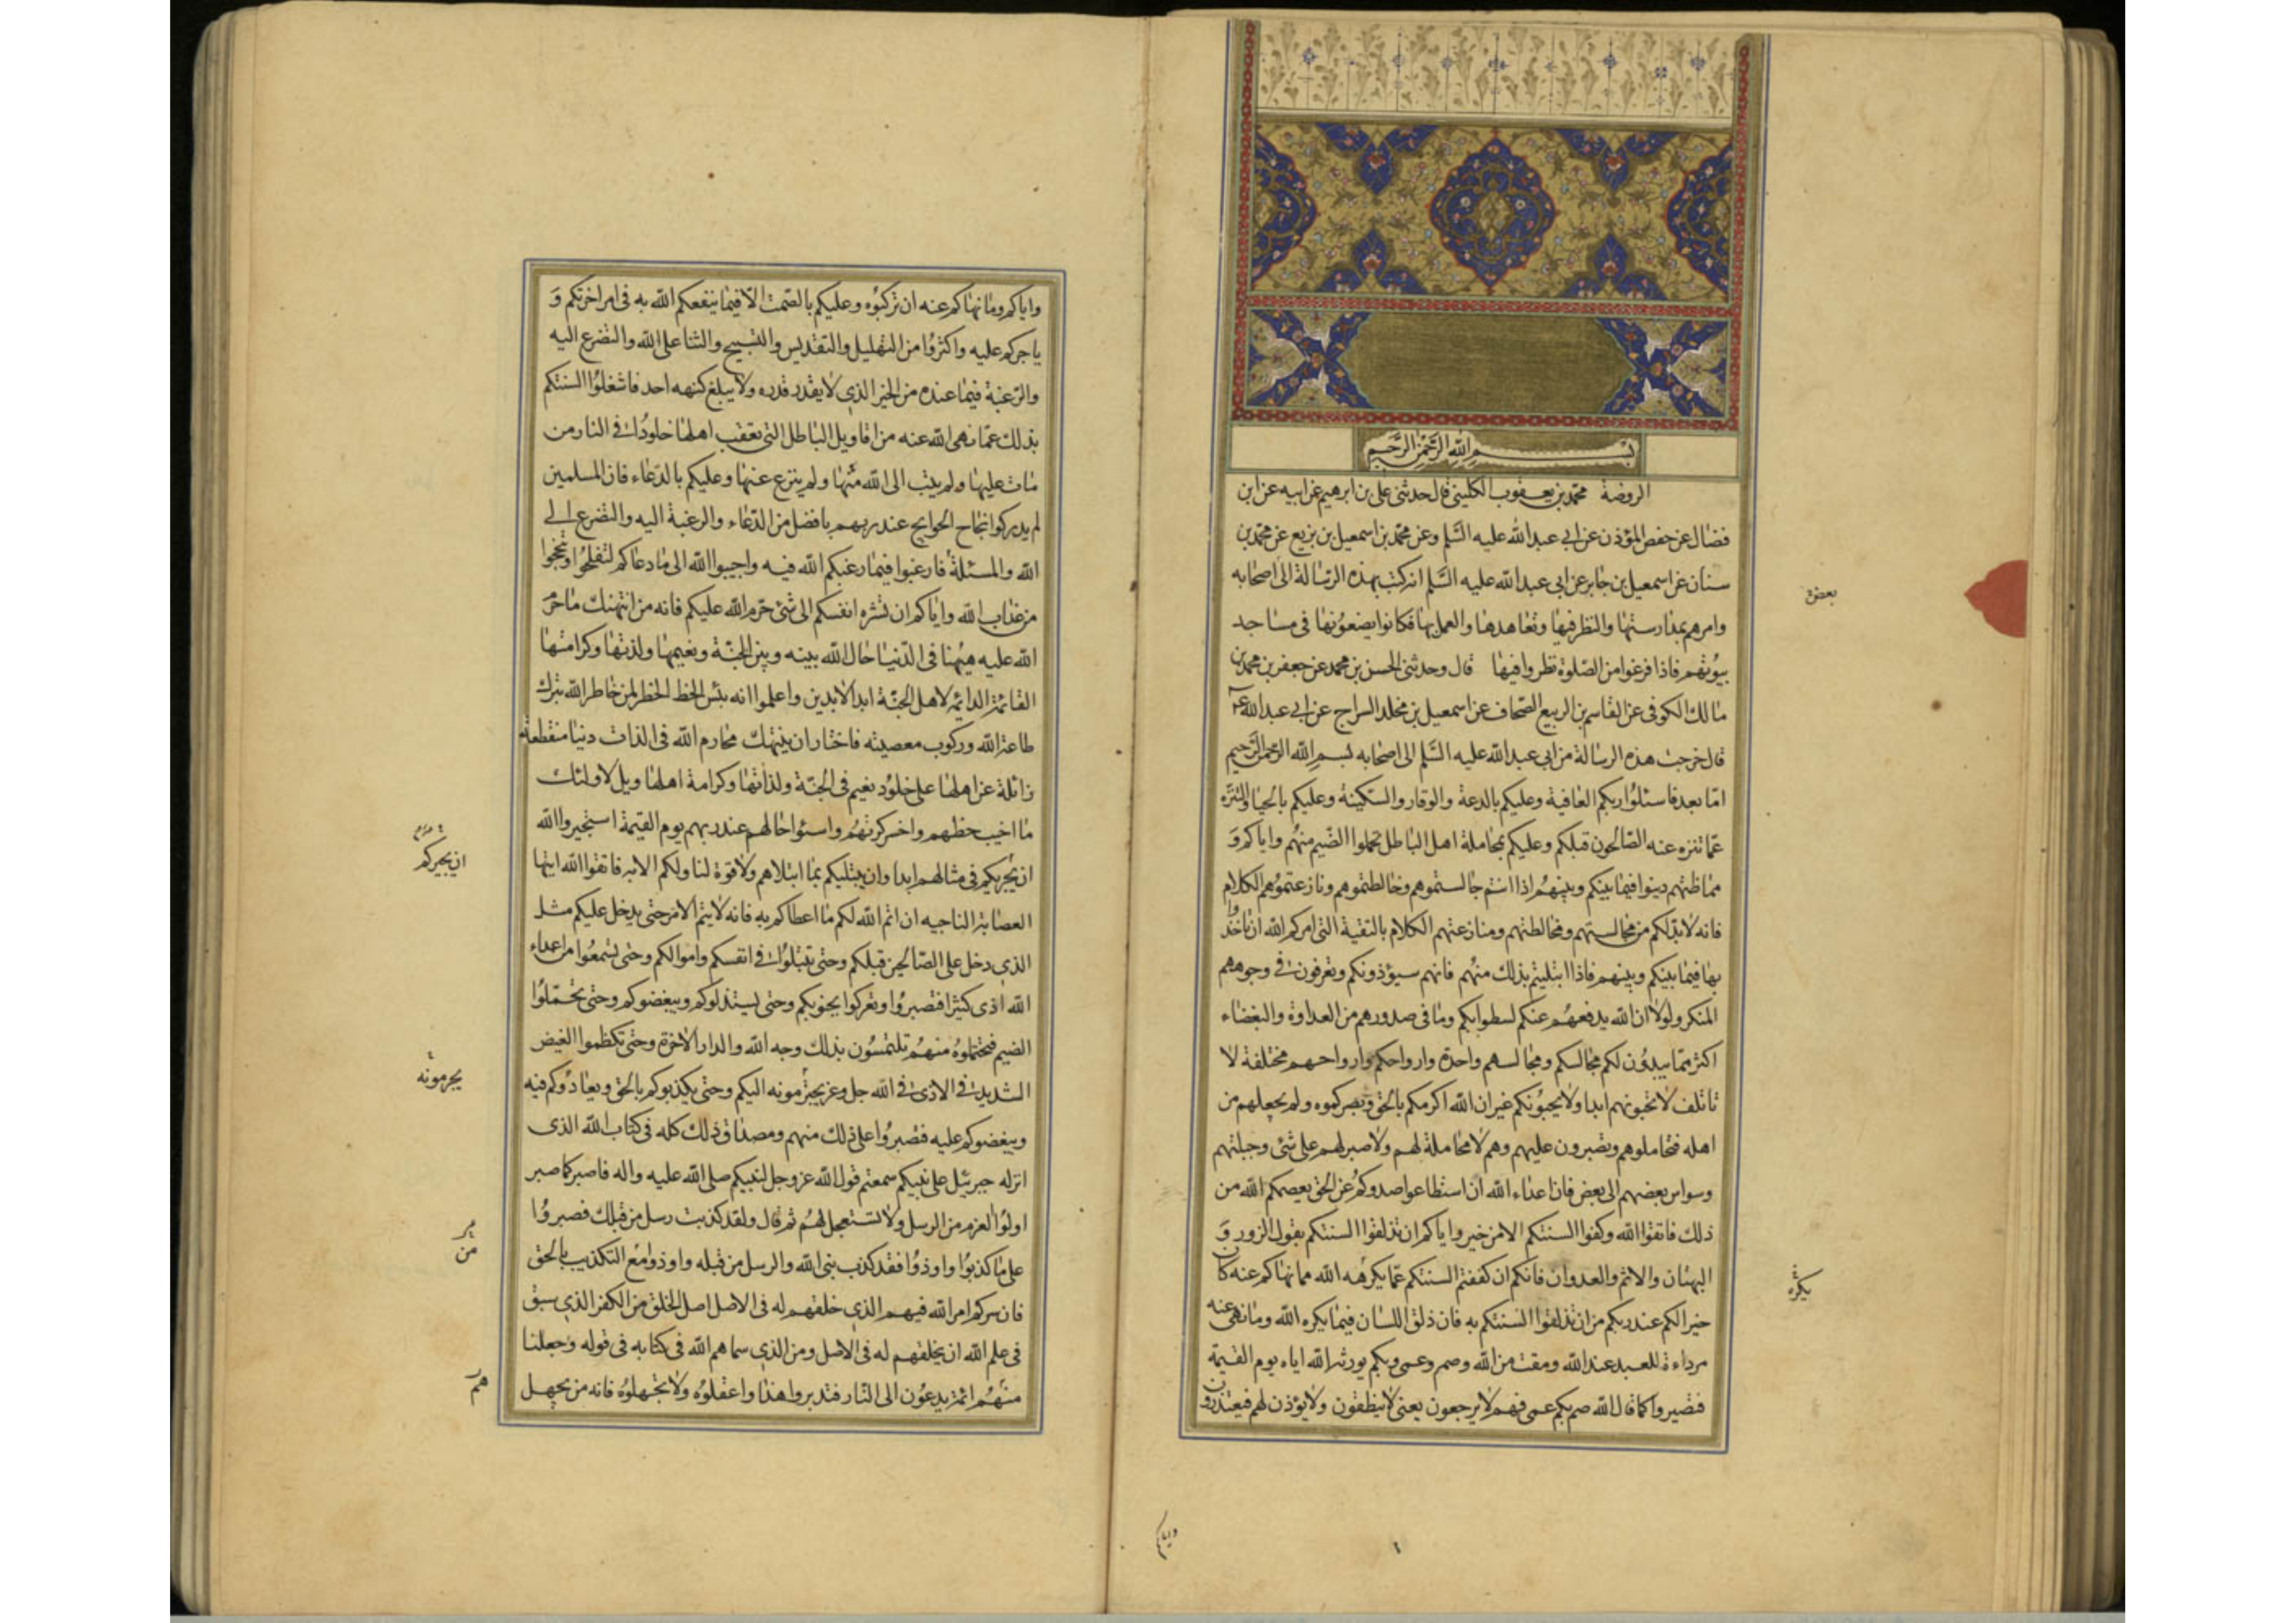 بسم الله الرحمن الرحيم
الروضة محمد بن يعقوب الكلينى قال حدثنى على بن ابرهيم عن ابيه عن ابن
فضال عن حفص المؤذن عن ابى عبد الله عليه السلم وعن محمد بن اسمعيل بن بزيع عن محمد بن
سنان عن اسمعيل بن جابر عن ابى عبد الله عليه السلم انه كتب بهذه الرسالة الى اصحابه
وامرهم بمدارستها والنظر فيها وتعاهدها والعمل بها فكانوا يضعونها فى مساجد
بيوتهم فاذا فرغوا من الصلوة نظروا فيها قال وحدثنى الحسن بن محمد عن جعفر بن محمد بن
مالك الكوفى عن القاسم بن الربيع الصحاف عن اسمعيل بن مخلد السراج عن ابى عبد الله ع
قال خرجت هذه الرسالة من ابى عبد الله عليه السلم الى اصحابه بسم الله الرحمن الرحيم
اما بعد فاسئلوا ربكم العافية وعليكم بالدعة والوقار والسكينة وعليكم بالحيا والتنزه
عما تنزه عنه الصالحون قبلكم وعليكم بمجاملة اهل الباطل تحملوا الضيم منهم واياكم و
مماظتهم دينوا فيما بينكم وبينهم اذا انتم جالستموهم وخالطتموهم ونازعتموهم الكلام
فانه لابد لكم من مجالستهم ومخالطتهم ومنازعتهم الكلام بالتقية التى امركم الله ان تاخذوا
بها فيما بينكم وبينهم فاذا ابتليتم بذلك منهم فانهم سيؤذونكم وتعرفون فى وجوههم
المنكر ولولا ان الله يدفعهم عنكم لسطوا بكم وما فى صدورهم من العداوة والبغضاء
اكثر مما يبدون لكم مجالسكم ومجالسهم واحدة وارواحكم وارواحهم مختلفة لا
تاتلف لا تحبونهم ابدا ولا يحبونكم غير ان الله اكرمكم بالحق وبصركموه ولم يجعلهم من
اهله فتجاملوهم وتصبرون عليهم وهم لا مجاملة لهم ولا صبر لهم على شئ وجبلتهم
وسواس بعضهم الى بعض فان اعداء الله ان استطاعوا صدوكم عن الحق يعصمكم الله من
ذلك فاتقوا الله وكفوا السنتكم الا من خير واياكم ان تذلقوا السنتكم بقول الزور و
البهتان والاثم والعدوان فانكم ان كففتم السنتكم عما يكرهه الله مما نهاكم عنه كان
خيرا لكم عند ربكم من ان تذلقوا السنتكم به فان ذلق اللسان فيما يكره الله وما نهى عنه
مرداءة للعبد عند الله ومقت من الله وصم وعمى وبكم يورثه الله اياه يوم القيمة
فتصيروا كما قال الله صم بكم عمى فهم لا يرجعون يعنى لا ينطقون ولا يؤذن لهم فيعتذرون
بعض
يكره
واياكم
واياكم وما نهاكم عنه ان تركبوه وعليكم بالصمت الا فيما ينفعكم الله به فى امر اخرتكم و
ياجركم عليه واكثروا من التهليل والتقديس والتسبيح والثنا على الله والتضرع اليه
والرغبة فيما عنده من الخير الذى لا يقدر قدره ولا يبلغ كنهه احد فاشغلوا السنتكم
بذلك عما نهى الله عنه من اقاويل الباطل التى تعقب اهلها خلودا فى النار من
مات عليها ولم يتب الى الله منها ولم ينزع عنها وعليكم بالدعاء فان المسلمين
لم يدركوا نجاح الحوايج عند ربهم بافضل من الدعاء والرغبة اليه والتضرع الى
الله والمسئلة فارغبوا فيما رغبكم الله فيه واجيبوا الله الى ما دعاكم لتفلحوا وتنجوا
من عذاب الله واياكم ان تشره انفسكم الى شئ حرم الله عليكم فانه من انتهك ما حرم
الله عليه ههنا فى الدنيا حال الله بينه وبين الجنة ونعيمها ولذتها وكرامتها
القائمة الدائمة لاهل الجنة ابد الابدين واعلموا انه بئس الحظ الخطر لمن خاطر الله بترك
طاعة الله وركوب معصيته فاختار ان ينتهك محارم الله فى لذات دنيا منقطعة
زائلة عن اهلها على خلود نعيم فى الجنة ولذاتها وكرامة اهلها ويل لاولئك
ما اخيب حظهم واخسر كرتهم واسوا حالهم عند ربهم يوم القيمة استجيروا الله
ان يجريكم فى مثالهم ابدا وان يبتليكم بما ابتلاهم ولا قوة لنا ولكم الا به فاتقوا الله ايتها
العصابة الناجيه ان اتم الله لكم ما اعطاكم به فانه لا يتم الامر حتى يدخل عليكم مثل
الذى دخل على الصالحين قبلكم وحتى تبتلوا فى انفسكم واموالكم وحتى تسمعوا من اعداء
الله اذى كثيرا فتصبروا وتعركوا بجنوبكم وحتى يستذلوكم ويبغضوكم وحتى تحملوا
الضيم فتحتملوه منهم تلتمسون بذلك وجه الله والدار الاخرة وحتى تكظموا الغيض
الشديد فى الاذى فى الله جل وعز يجترمونه اليكم وحتى يكذبوكم بالحق ويعادوكم فيه
ويبغضوكم عليه فتصبروا على ذلك منهم ومصداق ذلك كله فى كتاب الله الذى
انزله جبرئيل على نبيكم سمعتم قول الله عز وجل لنبيكم صلى الله عليه واله فاصبر كما صبر
اولوا العزم من الرسل ولا تستعجل لهم ثم قال ولقد كذبت رسل من قبلك فصبروا
على ما كذبوا واوذوا فقد كذب نبى الله والرسل من قبله واوذوا مع التكذيب بالحق
فان سركم امر الله فيهم الذى خلقهم له فى الاصل اصل الخلق من الكفر الذى سبق
فى علم الله ان يخلقهم له فى الاصل ومن الذى سماهم الله فى كتابه فى قوله وجعلنا
منهم ائمة يدعون الى النار فتدبروا هذا واعقلوه ولا تجهلوه فانه من يجهل
ان يجيركم
يجرمونه
من
هم